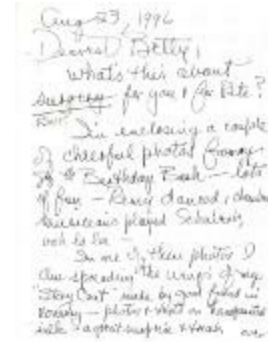 Aug 23, 1996
Dearest Betty,
What's this about
surgery for you & for Pete?
I'm enclosing a couple
of cheerful photos from
Birthday Bash — lots
of fun — danced, chamber
musicians played Schubert,
ooh la la —
In one of these photos I
am spreading the wings of my
"Story Coat" made by good friend in
— photos & on transparent
silk — a great surprise &
over